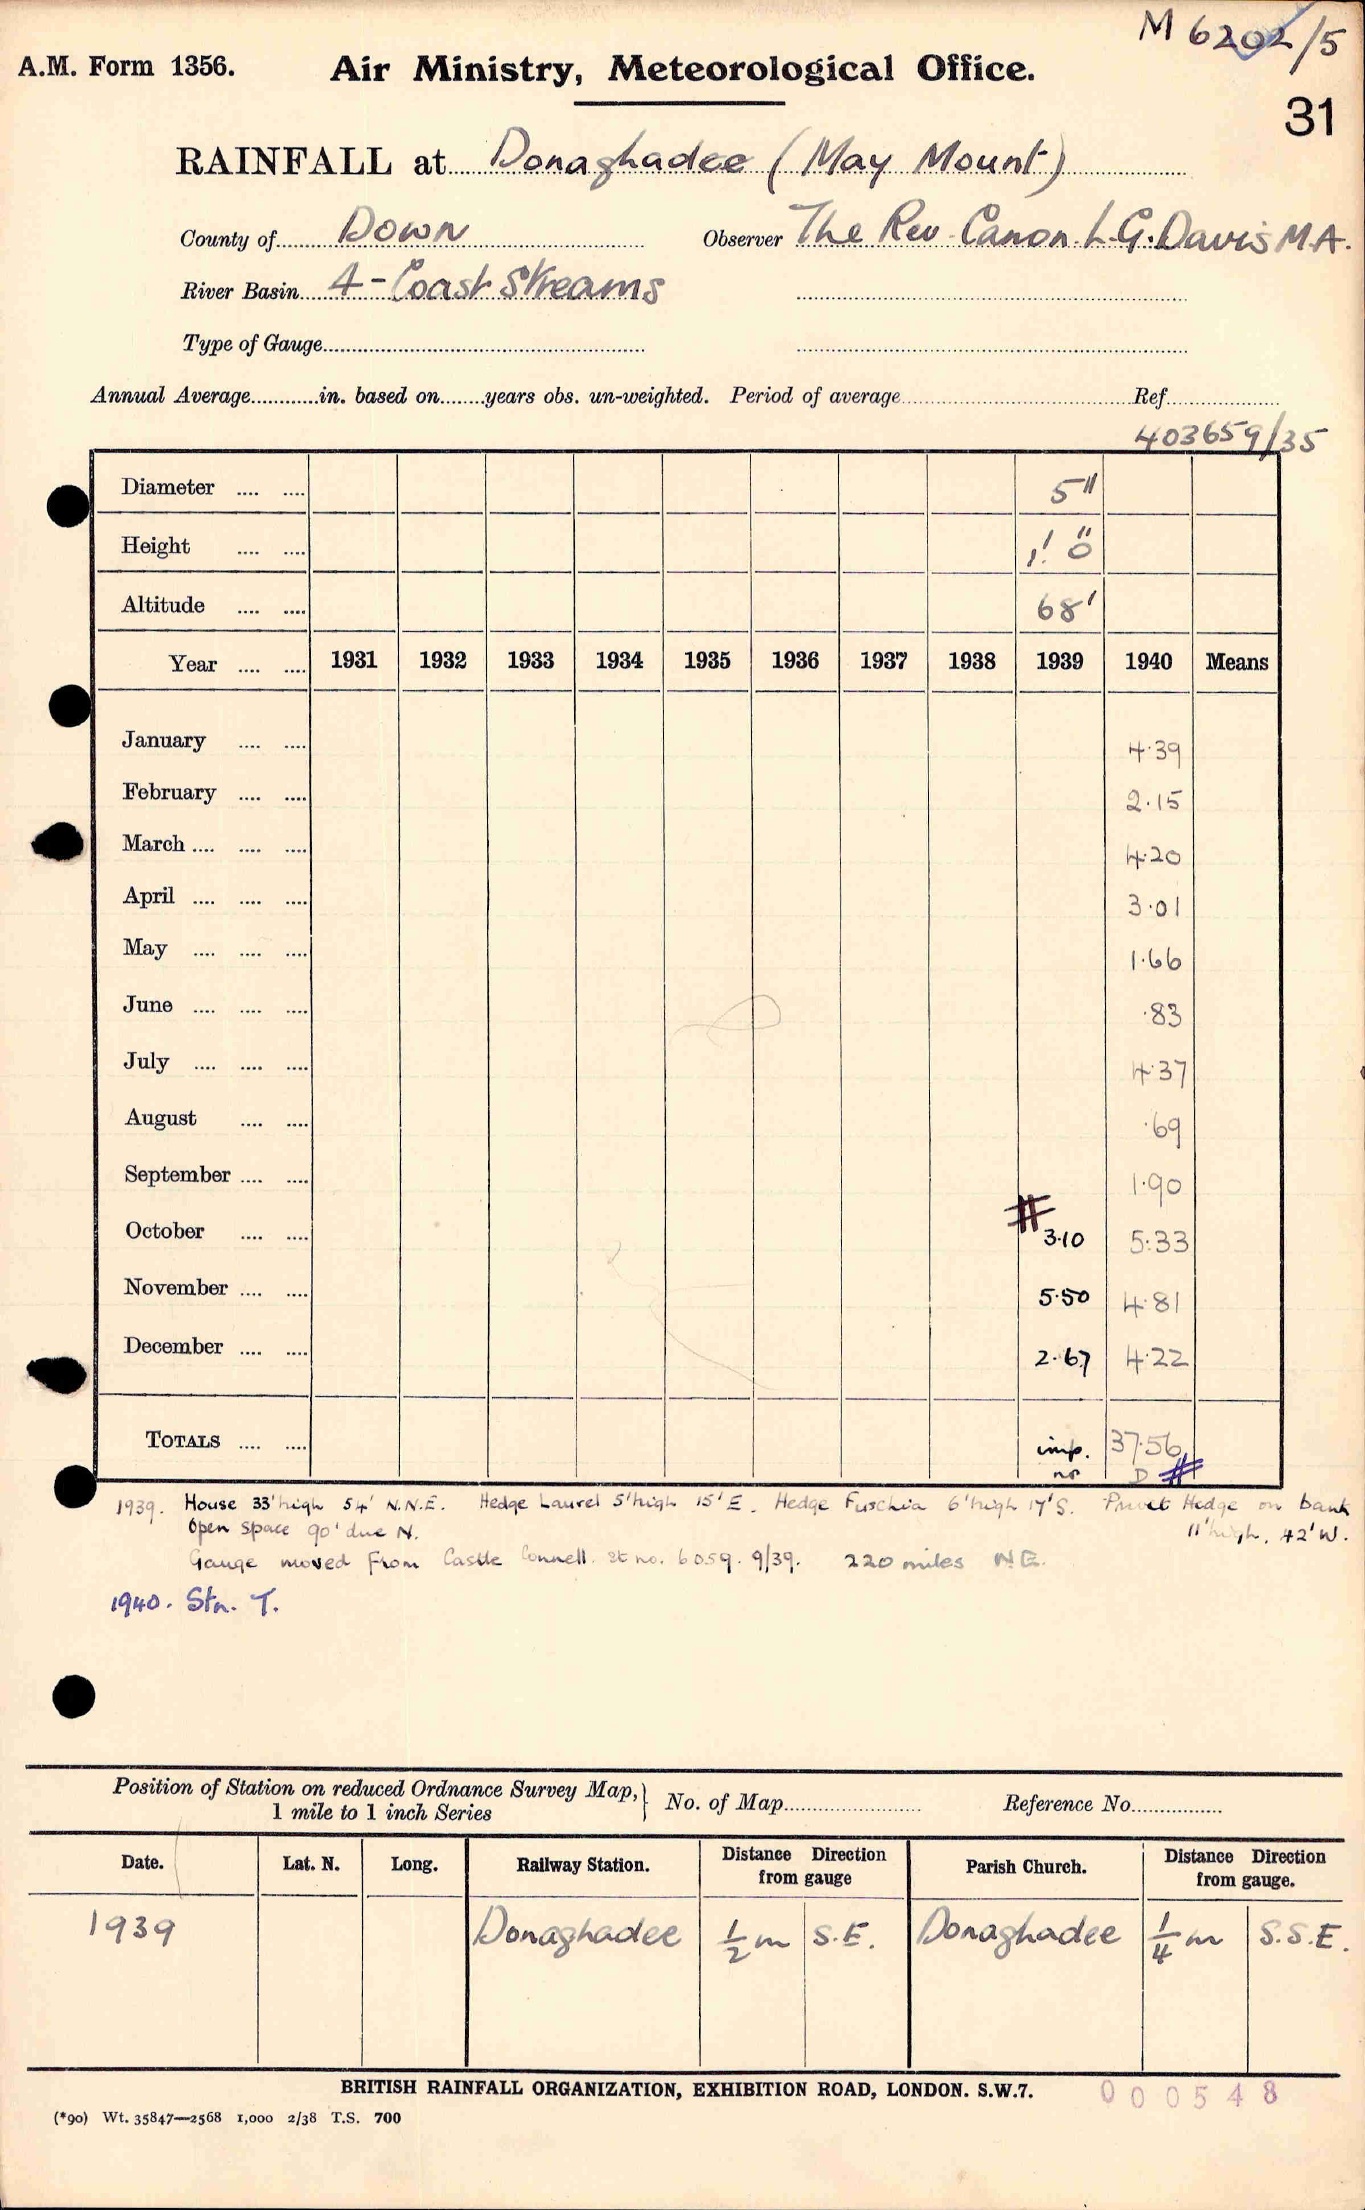 M 6202/5
A.M. Form 1356. Air Ministry, Meteorological Office.
31
RAINFALL at Donaghadee (May Mount)
County of Down Observer The Rev. Canon. L.G. Davis M.A.
River Basin 4-Coast Streams
Type of Gauge
Annual Average in. based on years obs. un-weighted. Period of average Ref
403659/35
Diameter 5"
Height 1' 0"
Altitude 68'
Year 1931 1932 1933 1934 1935 1936 1937 1938 1939 1940 Means
January 4.39
February 2.15
March 4.20
April 3.01
May 1.66
June .83
July 4.37
August .69
September 1.90
October # 3.10 5.33
November 5.50 4.81
December 2.67 4.22
TOTALS imp. 37.56
no D #
1939. House 33' high 54' N.N.E. Hedge Laurel 5' high 15' E. Hedge Fuschia 6' high 17' S. Privet Hedge on bank
Open space 90' due N. 11' high, 42' W.
Gauge moved from Castle Connell. St no. 6059. 9/39. 220 miles N.E.
1940. Stn. T.
Position of Station on reduced Ordnance Survey Map,
1 mile to 1 inch Series } No. of Map Reference No.
Date. Lat. N. Long. Railway Station. Distance Direction from gauge Parish Church. Distance Direction from gauge.
1939 Donaghadee 1/2 m S.E. Donaghadee 1/4 m S.S.E.
BRITISH RAINFALL ORGANIZATION, EXHIBITION ROAD, LONDON. S.W.7. 000548
(*90) Wt. 35847—2568 1,000 2/38 T.S. 700